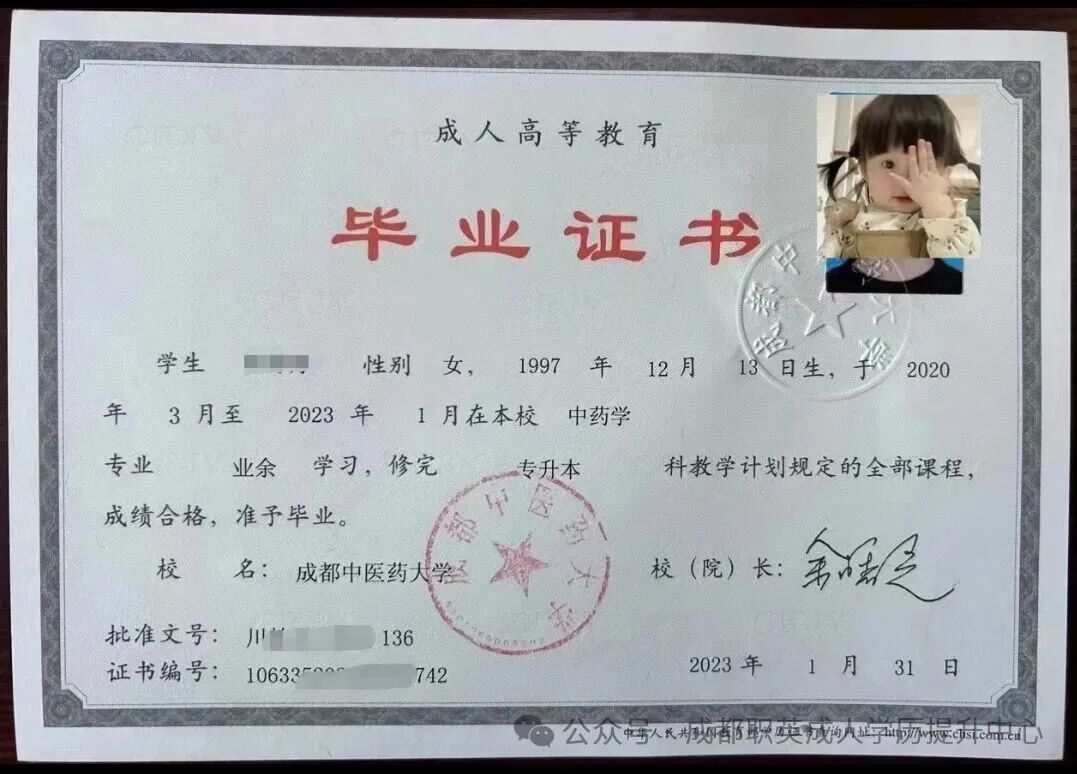 成人高等教育
毕业证书
学生 性别 女， 1997 年 12 月 13 日生，于 2020
年 3 月至 2023 年 1 月在本校 中药学
专业 业余 学习，修完 专升本 科教学计划规定的全部课程，
成绩合格，准予毕业。
校 名： 成都中医药大学
校（院）长：
批准文号： 川 136
证书编号： 10633 742
2023 年 1 月 31 日
成都中医药大学
公众号 · 成都职英成人学历提升中心
http://www.chsi.com.cn